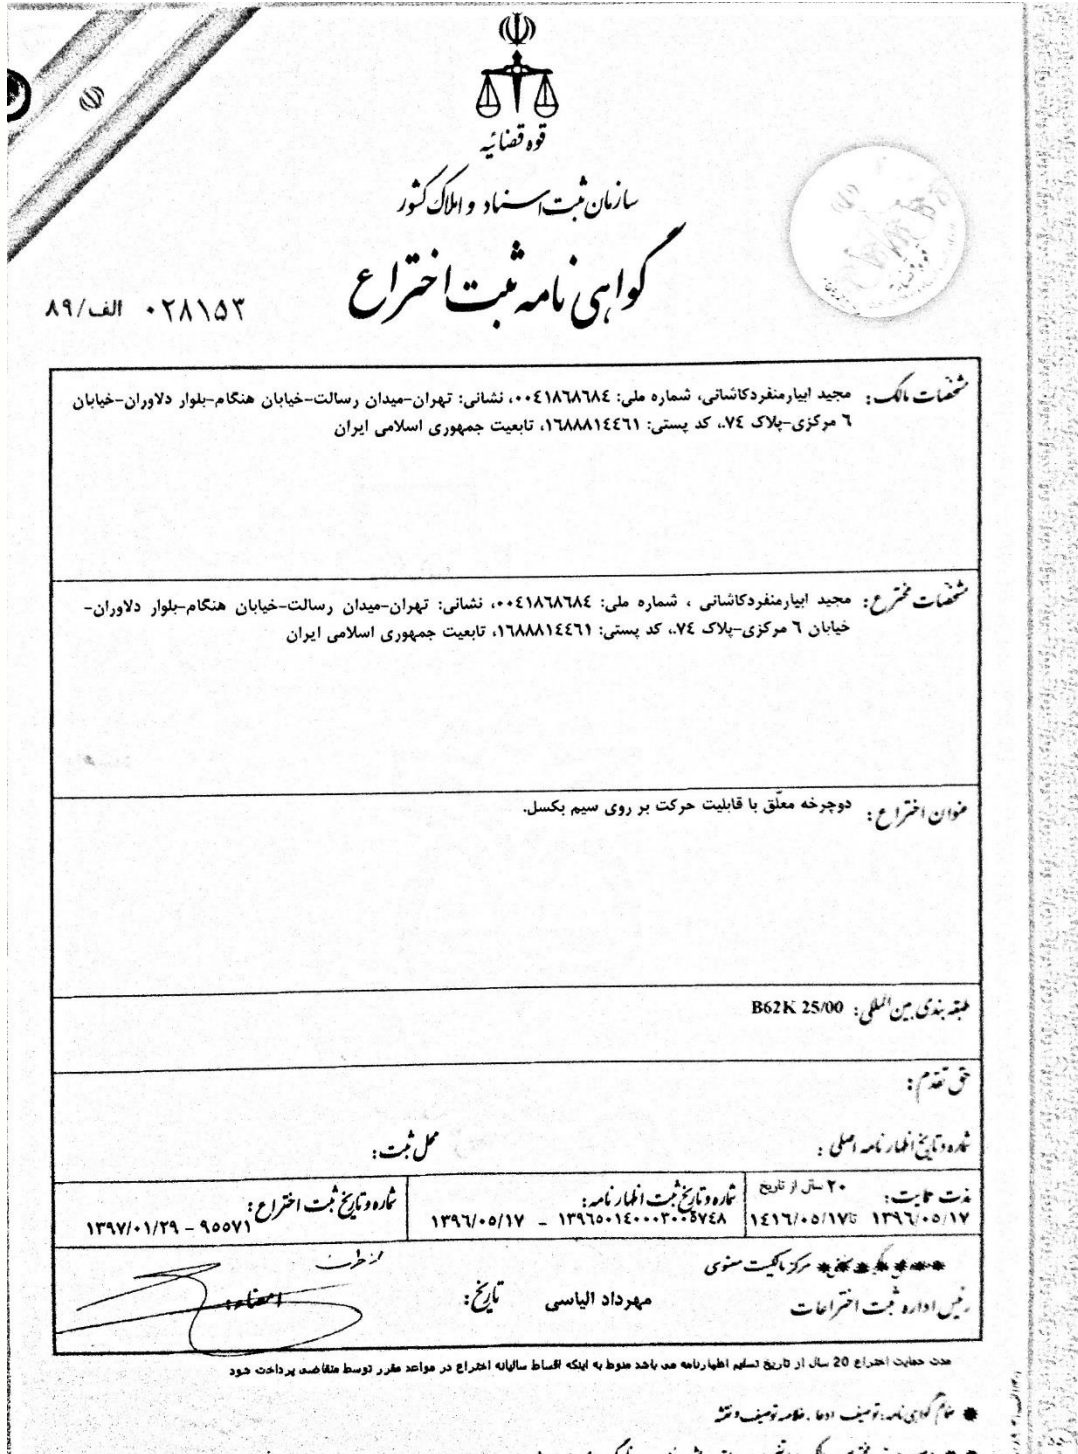 قوه قضائیه
سازمان ثبت اسناد و املاک کشور
گواهی نامه ثبت اختراع
۰۲۸۱۵۳ الف/۸۹
مشخصات مالک: مجید ابیارمنفردکاشانی، شماره ملی: ۰۰٤۱۸٦۸٦۸٤، نشانی: تهران-میدان رسالت-خیابان هنگام-بلوار دلاوران-خیابان
٦ مرکزی-پلاک ۷٤.، کد پستی: ۱٦۸۸۸۱٤٤٦۱، تابعیت جمهوری اسلامی ایران
مشخصات مخترع: مجید ابیارمنفردکاشانی ، شماره ملی: ۰۰٤۱۸٦۸٦۸٤، نشانی: تهران-میدان رسالت-خیابان هنگام-بلوار دلاوران-
خیابان ٦ مرکزی-پلاک ۷٤.، کد پستی: ۱٦۸۸۸۱٤٤٦۱، تابعیت جمهوری اسلامی ایران
عنوان اختراع: دوچرخه معلّق با قابلیت حرکت بر روی سیم بکسل.
طبقه بندی بین المللی: B62K 25/00
حق تقدم:
شماره و تاریخ اظهار نامه اصلی: محل ثبت:
مدت حمایت: ۲۰ سال از تاریخ
۱۳۹٦/۰٥/۱۷ تا ۱٤۱٦/۰٥/۱۷
شماره و تاریخ ثبت اظهار نامه:
۱۳۹٦٥۰۱٤۰۰۰۳۰۰٥۷٤۸ - ۱۳۹٦/۰٥/۱۷
شماره و تاریخ ثبت اختراع:
۹٥٥۷۱ - ۱۳۹۷/۰۱/۲۹
مرکز مالکیت معنوی
رئیس اداره ثبت اختراعات مهرداد الیاسی تاریخ: امضاء:
مدت حمایت اختراع 20 سال از تاریخ تسلیم اظهارنامه می باشد منوط به اینکه اقساط سالیانه اختراع در مواعد مقرر توسط متقاضی پرداخت شود
گواهی نامه: توصیف، ادعا، خلاصه توصیف و نقشه